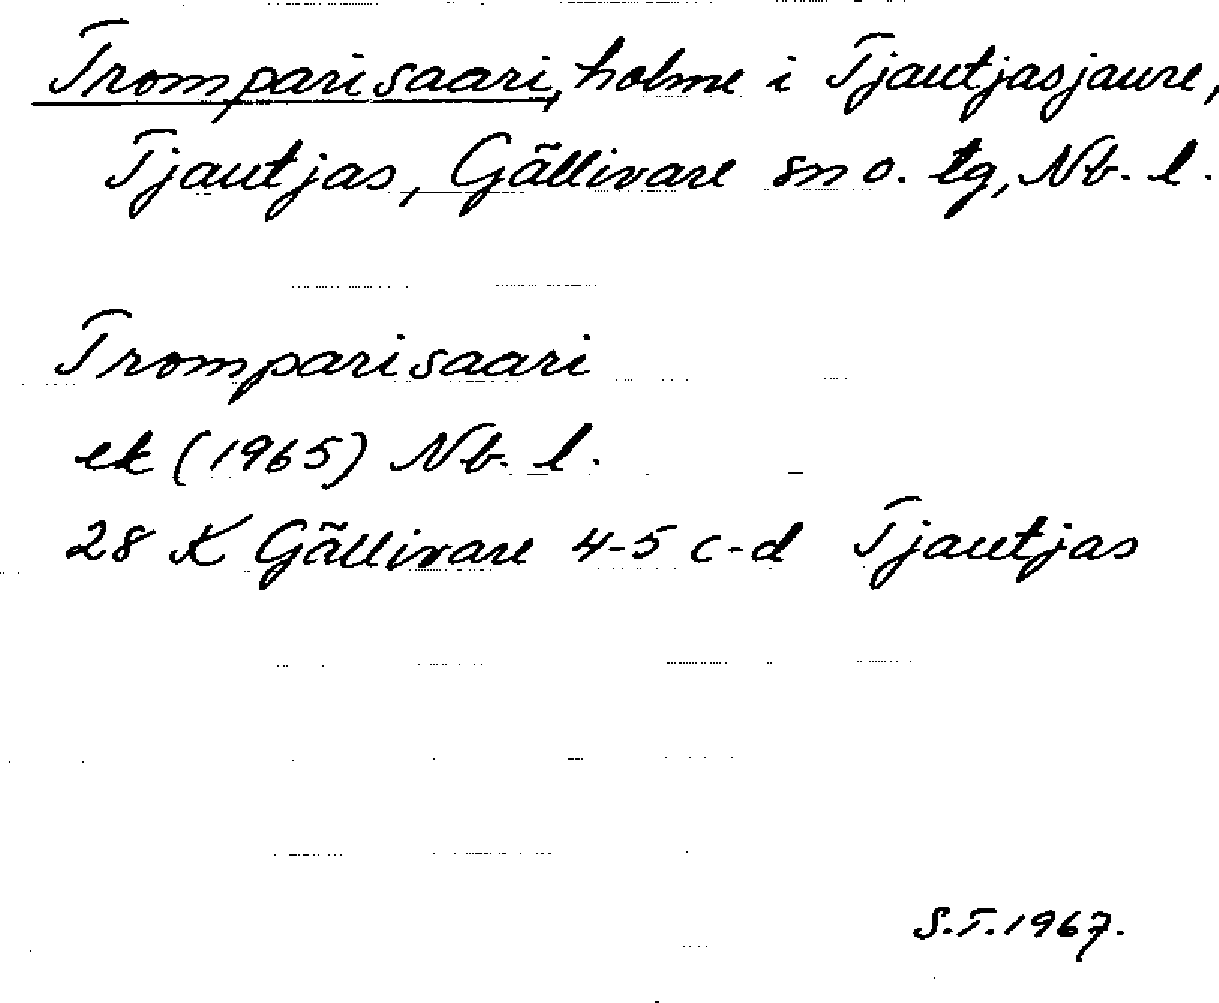 Tromparisaari, holme i Tjautjasjaure,
Tjautjas, Gällivare sn o. tg, Nb. l.
Tromparisaari
ek (1965) Nb. l.
28 K Gällivare 4-5 c-d Tjautjas
S.T. 1967.